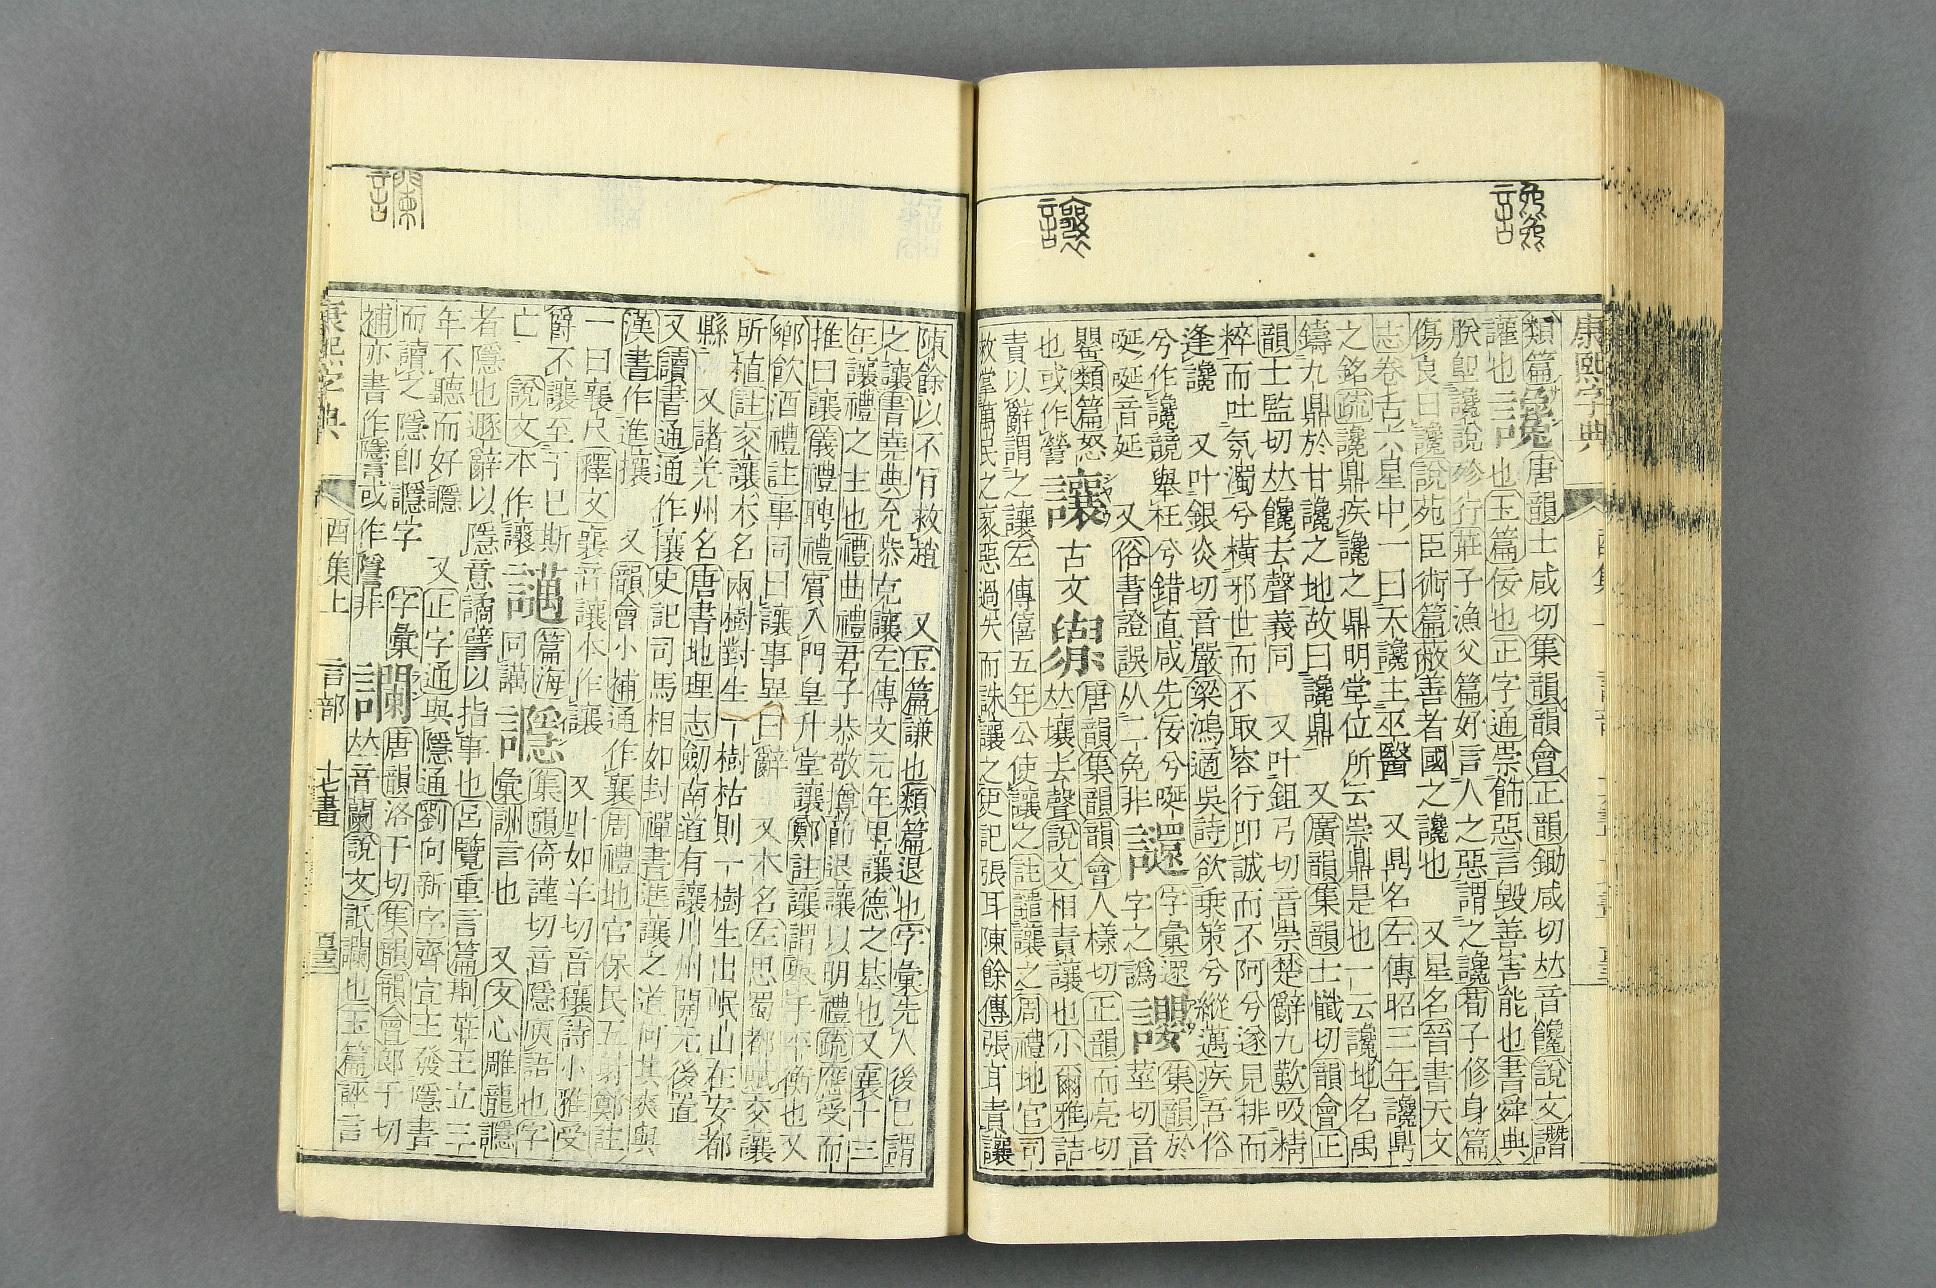 康熙字典
類篇讒唐韻士咸切集韻韻會正韻鋤咸切𠀤音饞說文譖
讒也一曰也玉篇佞也正字通崇飾惡言毀善害能也書舜典
朕堲讒說殄行莊子漁父篇好言人之惡謂之讒荀子修身篇
傷良曰讒說苑臣術篇蔽善者國之讒也 又星名晉書天文
志卷舌六星中一曰天讒主巫醫 又鼎名左傳昭三年讒鼎
之銘疏讒鼎疾讒之鼎明堂位所云崇鼎是也一云讒地名禹
鑄九鼎於甘讒之地故曰讒鼎 又廣韻集韻士懺切韻會正
韻士監切𠀤饞去聲義同 又叶鉏弓切音崇楚辭九歎吸精
粹而吐氛濁兮橫邪世而不取容行叩誠而不阿兮遂見排而
逢讒 又叶銀炎切音嚴梁鴻適吳詩欲乗策兮縱邁疾吾俗
兮作讒競舉枉兮錯直咸先佞兮唌唌音延 又俗書證誤从二免非
譞字彙還字之譌
䜲集韻於莖切音罌類篇怒也或作謍
讓古文𧭄唐韻集韻韻會人樣切正韻而亮切𠀤壤去聲說文相責讓也小爾雅詰
責以辭謂之讓左傳僖五年公使讓之註譴讓之周禮地官司
救掌萬民之衺惡過失而誅讓之史記張耳陳餘傳張耳責讓
陳餘以不肎救趙 又玉篇謙也類篇退也字彙先人後己謂
之讓書堯典允恭克讓左傳文元年卑讓德之基也又襄十三
年讓禮之主也禮曲禮君子恭敬撙節退讓以明禮疏應受而
推曰讓儀禮聘禮賓入門皇升堂讓鄭註讓謂舉手平衡也又
鄉飮酒禮註事同曰讓事異曰辭 又木名左思蜀都賦交讓
所植註交讓木名兩樹對生一樹枯則一樹生出岷山在安都
縣 又諸羌州名唐書地理志劒南道有讓川州開元後置
又讀書通通作攘史記司馬相如封禪書進讓之道何其爽與
漢書作進攘 又韻會小補通作襄周禮地官保民五射鄭註
一曰襄尺釋文襄音讓本作讓 又叶如羊切音穰詩小雅受
爵不讓至于已斯亡 說文本作讓
𧭇篇海同講
讔集韻倚謹切音隱廋語也字彙訓言也 又文心雕龍讔
者隱也遯辭以隱意譎譬以指事也呂覽重言篇荆莊王立三
年不聽而好讔 又正字通與隱通劉向新序齊宣王發隱書
而讀之隱卽讔字 字彙補亦書作隱言或作㥯非
讕唐韻洛干切集韻韻會郎干切𠀤音闌說文詆讕也玉篇誣言
康熙字典 酉集上 言部 十七畫